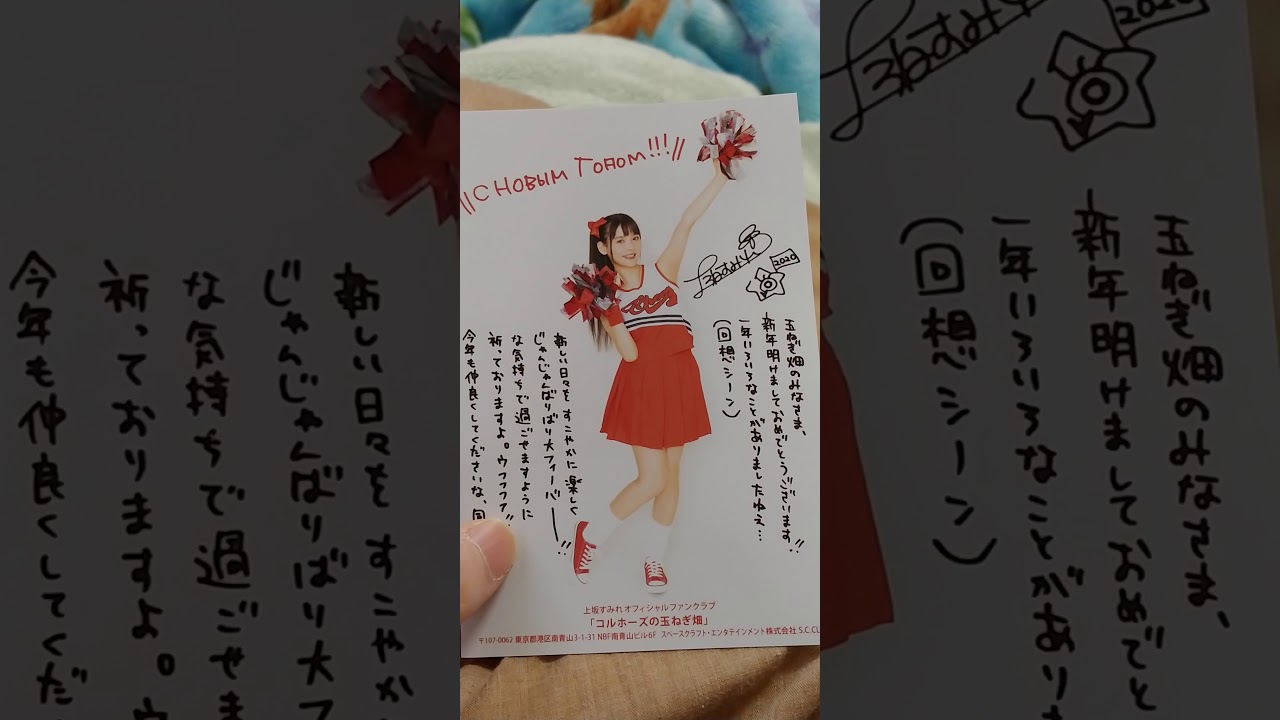 \\С НОВЫМ ГОДОМ!!!//
上坂すみれ
2020
玉ねぎ畑のみなさま、
新年明けましておめでとうございます!!
一年いろいろなことがありましたねえ…
(回想シーン)
新しい日々をすこやかに楽しく
じゃんじゃんばりばり大フィーバーーー!!
な気持ちで過ごせますように
祈っておりますよ。ウフフフ!!
今年も仲良くしてくださいな、同
上坂すみれオフィシャルファンクラブ
「コルホーズの玉ねぎ畑」
〒107-0062 東京都港区南青山3-1-31 NBF南青山ビル6F スペースクラフト・エンタテインメント株式会社 S.C.CL